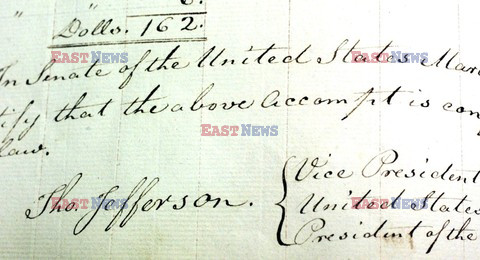 " " 6.
Dolls. 162.
In Senate of the United States Mar
tify that the above Accompt is con
law.
Tho. Jefferson. { Vice President
United States
President of the
EASTNEWS
EASTNEWS
EASTNEWS
EASTNEWS
EASTNEWS